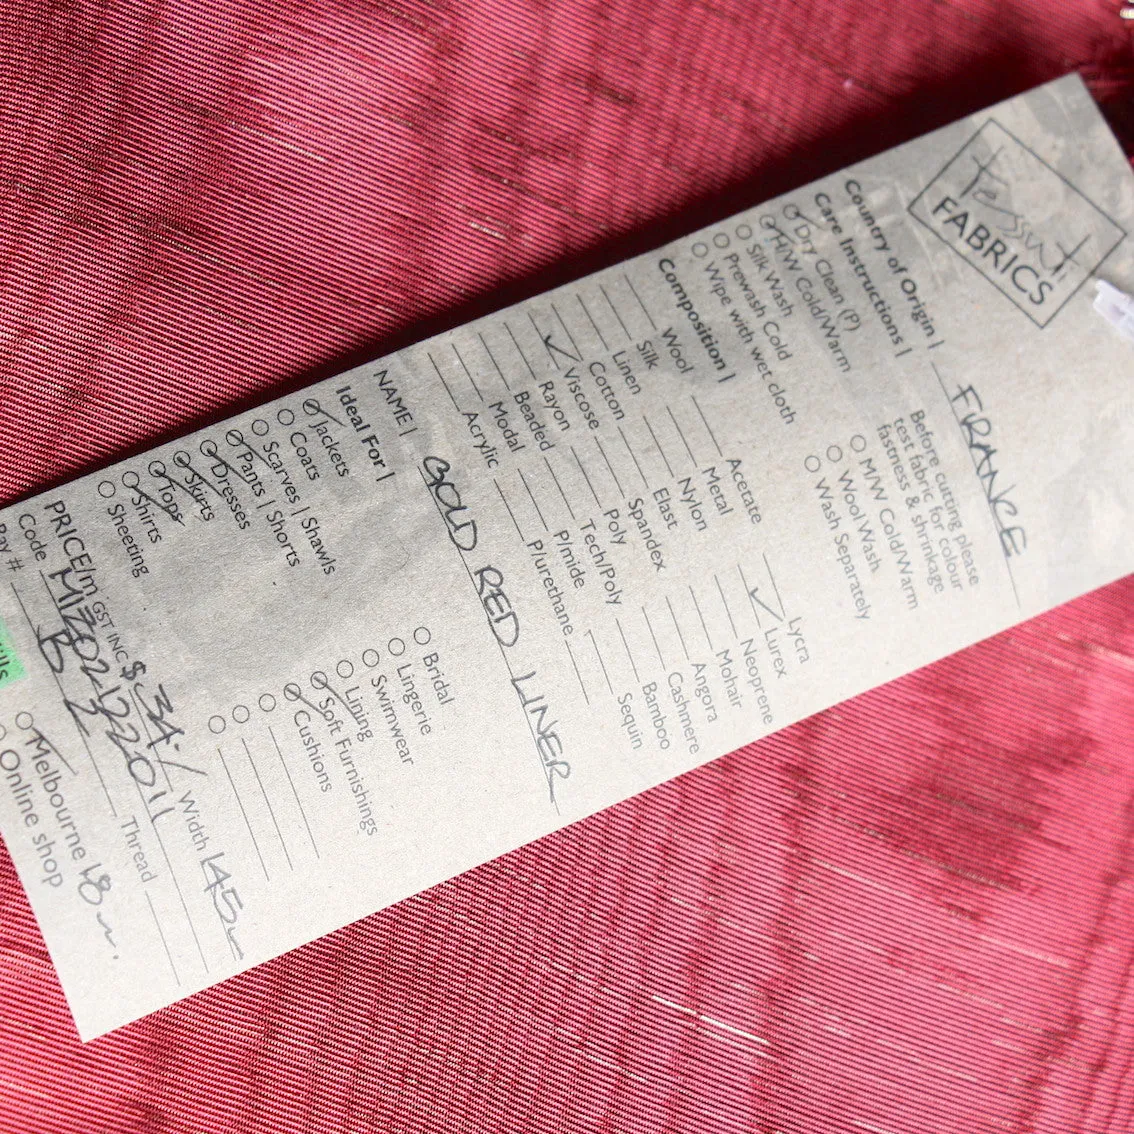 Tessuti
FABRICS
Country of Origin | FRANCE
Care Instructions |
Dry Clean (P)
H/W Cold/Warm
Silk Wash
Prewash Cold
Wipe with wet cloth
Before cutting please
test fabric for colour
fastness & shrinkage
M/W Cold/Warm
Wool Wash
Wash Separately
Composition |
Wool
Silk
Linen
Cotton
✓ Viscose
Rayon
Beaded
Modal
Acrylic
Acetate
Metal
Nylon
Elast
Spandex
Poly
Tech/Poly
P/mide
P/urethane
Lycra
✓ Lurex
Neoprene
Mohair
Angora
Cashmere
Bamboo
Sequin
NAME | GOLD RED LINER
Ideal For |
Jackets
Coats
Scarves | Shawls
Pants | Shorts
Dresses
Skirts
Tops
Shirts
Sheeting
Bridal
Lingerie
Swimwear
Lining
Soft Furnishings
Cushions
PRICE/m GST INC $ 34. / Width 145
Code
Thread
Melbourne 18
Online shop